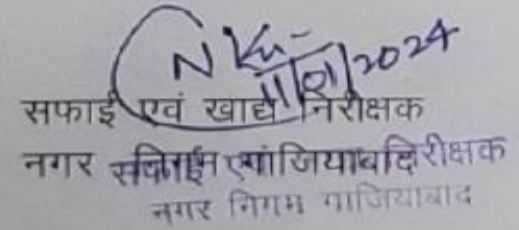 N Ku-
11/01/2024
सफाई एवं खाद्य निरीक्षक
नगर
नगर निगम गाजियाबाद